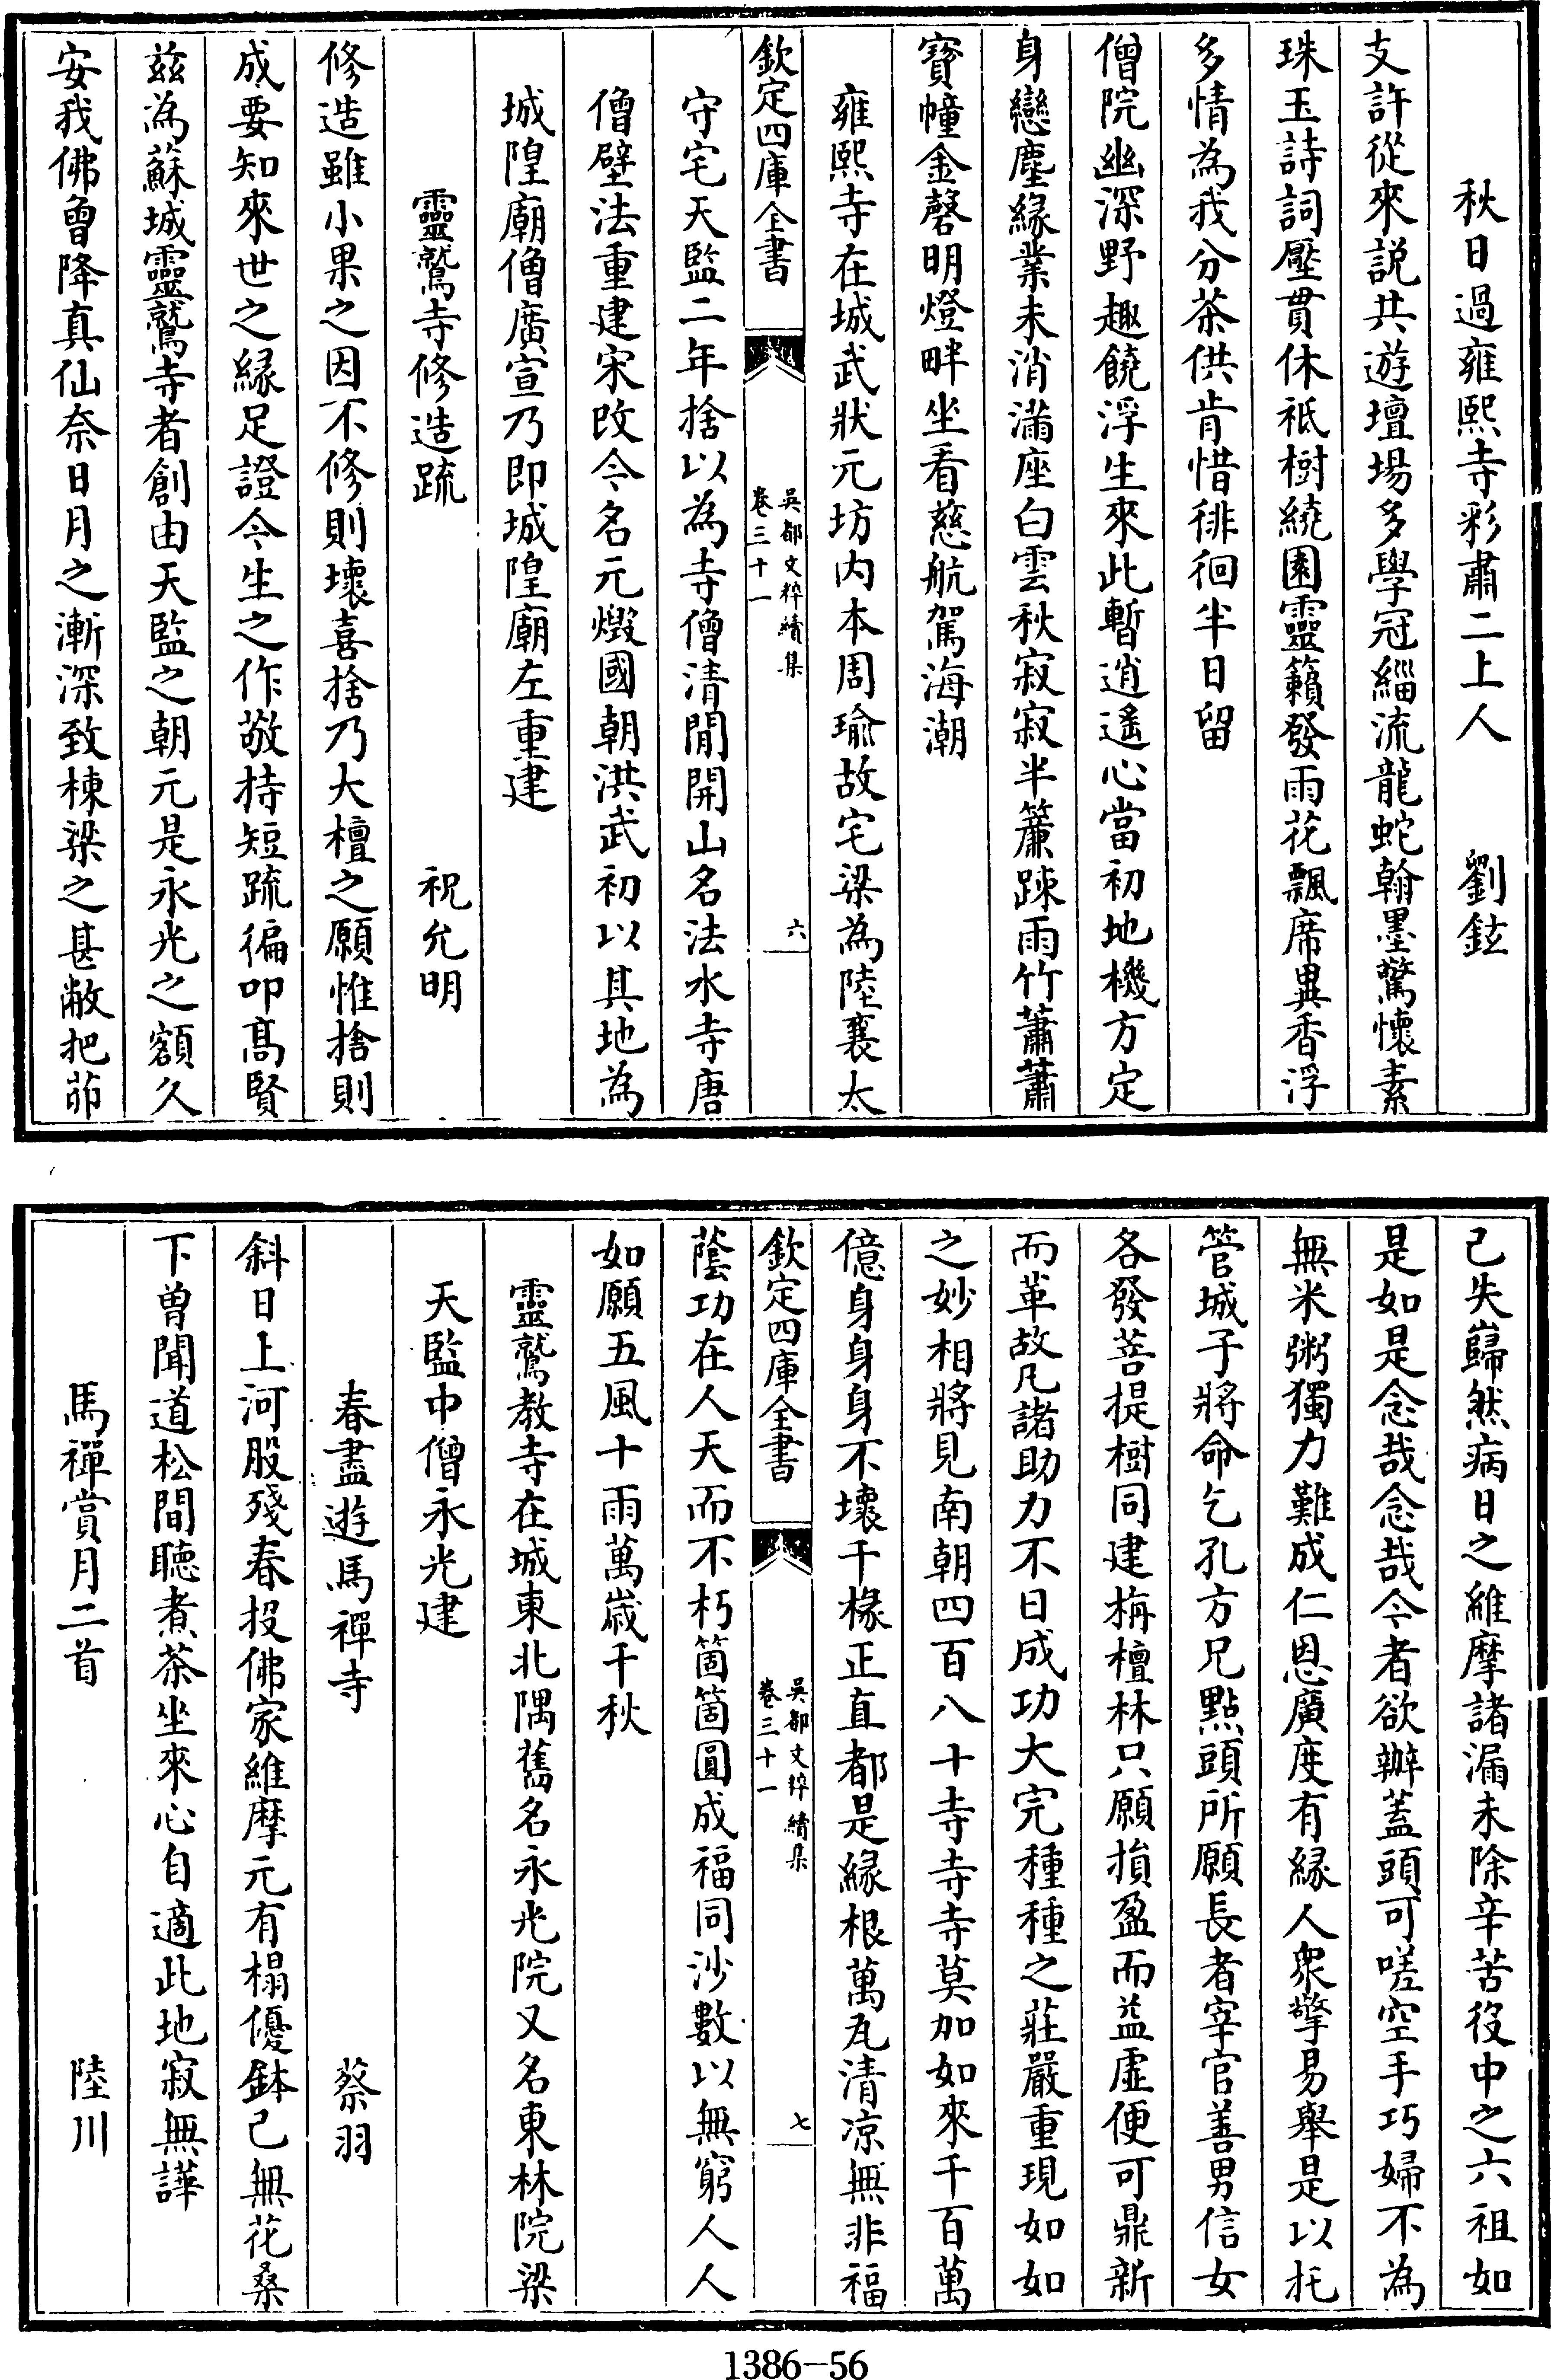 秋日過雍熙寺彩肅二上人 劉鉉
支許從來説共遊壇場多學冠緇流龍蛇翰墨驚懷素
珠玉詩詞壓貫休祗樹繞園靈籟發雨花飄席異香浮
多情為我分茶供肯惜徘徊半日留
僧院幽深野趣饒浮生來此暫逍遙心當初地機方定
身戀塵緣業未消滿座白雲秋寂寂半簾踈雨竹蕭蕭
寳幢金磬明燈畔坐看慈航駕海潮
雍熙寺在城武狀元坊内本周瑜故宅梁為陸襄太
欽定四庫全書
吳都文粹續集
卷三十一
六
守宅天監二年捨以為寺僧清閒開山名法水寺唐
僧壁法重建宋改今名元燬國朝洪武初以其地為
城隍廟僧廣宣乃即城隍廟左重建
靈鷲寺修造疏 祝允明
修造雖小果之因不修則壞喜捨乃大檀之願惟捨則
成要知來世之緣足證今生之作敬持短疏徧叩髙賢
兹為蘇城靈鷲寺者創由天監之朝元是永光之額久
安我佛曾降真仙奈日月之漸深致棟梁之甚敝把茆
已失巋然病日之維摩諸漏未除辛苦役中之六祖如
是如是念哉念哉今者欲辦蓋頭可嗟空手巧婦不為
無米粥獨力難成仁恩廣度有緣人衆擎易舉是以托
管城子將命乞孔方兄點頭所願長者宰官善男信女
各發菩提樹同建栴檀林只願損盈而益虛便可鼎新
而革故凡諸助力不日成功大完種種之莊嚴重現如如
之妙相將見南朝四百八十寺寺寺莫加如來千百萬
億身身身不壞千椽正直都是緣根萬瓦清凉無非福
欽定四庫全書
吳都文粹續集
卷三十一
七
蔭功在人天而不朽箇箇圓成福同沙數以無窮人人
如願五風十雨萬歲千秋
靈鷲教寺在城東北隅舊名永光院又名東林院梁
天監中僧永光建
春盡遊馬禪寺 蔡羽
斜日上河股殘春投佛家維摩元有榻優鉢已無花桑
下曽聞道松間聴煮茶坐來心自適此地寂無譁
馬禪賞月二首 陸川
1386-56